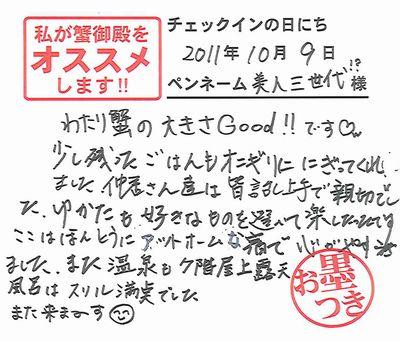 私が蟹御殿を
オススメ
します!!
チェックインの日にち
2011年10月9日
ペンネーム 美人三世代!? 様
わたり蟹の大きさGood!!です
少し残ったごはんもオニギリに にぎってくれ
ました 仲居さん達は皆話し上手で親切でし
た、ゆかたも好きなものを選べて楽しかったです
ここはほんとうにアットホームな宿で 心が
ました、また温泉も7階屋上露天
風呂はスリル満点でした
また来まーす
お墨つき